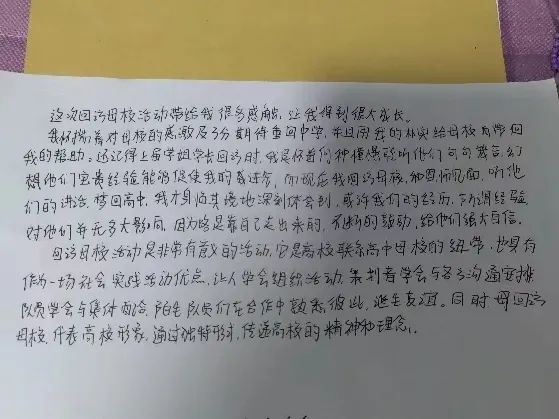 这次回访母校活动带给我很多感触,让我得到很大成长。
我怀揣着对母校的感激及3分期待重回中学,并且用我的 给母校力带回
我的帮助。还记得上届学姐学长回访时,我是怀着何种憧憬聆听他们句句箴言,幻
想他们宝贵经验能够促使我的奋进齐,而现在我回访母校,和恩师见面,听他
们的讲话,梦回高中,我才身临其境地深刻体会到,或许我们的经历,所谓经验
对他们并无多大影响,因为路是靠自己走出来的,不断的鼓动,给他们强大自信。
回访母校活动是非常有意义的活动,它是高校联系高中母校的纽带,也具有
作为一场社会实践活动优点,让人学会组织活动,策划者学会与各方沟通安排
队员学会与集体 ,陌生队员们在合作中熟悉彼此,诞生友谊。同时 回访
母校,代表高校形象,通过独特形式,传递高校的精神和理念。